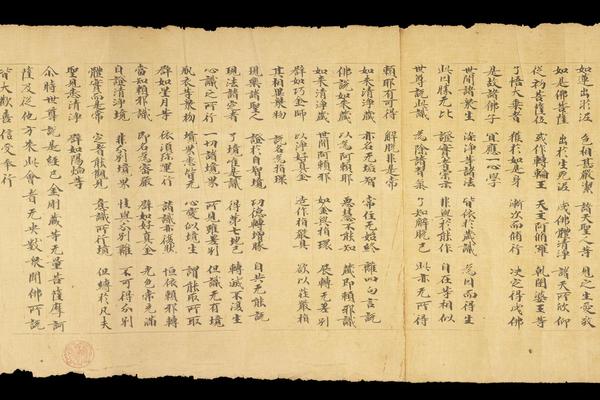 如蓮出淤泥 色相甚嚴潔 諸天聖人等 見之生愛敬
如是佛菩薩 出於生死泥 成佛體清淨 諸天所欣仰
從初菩薩位 或作轉輪王 天主阿修羅 乾闥婆王等
了悟大乘者 獲於如是身 漸次而修行 決定得成佛
是故諸佛子 宜應一心學
世間諸衆生 染淨等諸法 皆依於藏識 為因而得生
此因勝无比 證實者宗承 非與於能作 自在等相似
世尊說此識 為除諸習氣 了知解脫已 此亦无所得
賴耶有可得 解脫非是常
如來清淨藏 亦名无垢智 常住无始終 離四句言說
佛說如來藏 以為阿賴耶 惡慧不能知 藏即賴耶識
如來清淨藏 世間阿賴耶 如金與指環 展轉无差別
譬如巧金師 以淨好真金 造作指嚴具 欲以莊嚴指
其相異衆物 說名為指環
現樂諸聖人 證於自智境 功德轉增勝 自共无能說
現法諸定者 了境唯是識 得第七地已 轉滅不復生
心識之所行 一切諸境界 所見雖差別 但識无有境
瓶衣等衆物 境界悉皆无 心變似境生 謂能取所取
譬如星月等 依須彌運行 諸識亦復然 恒依賴耶轉
當知賴耶識 即名為密嚴 譬如好真金 光色常充滿
自證清淨境 非分別境界 性與分別離 不可得分別
體實是常 定者能觀見 意識所行境 但縛於凡夫
聖見悉清淨 譬如陽焰等
尒時世尊說是經已金剛藏等无量菩薩摩訶
薩及從他方來此會者无央數衆聞佛所說
皆大歡喜信受奉行